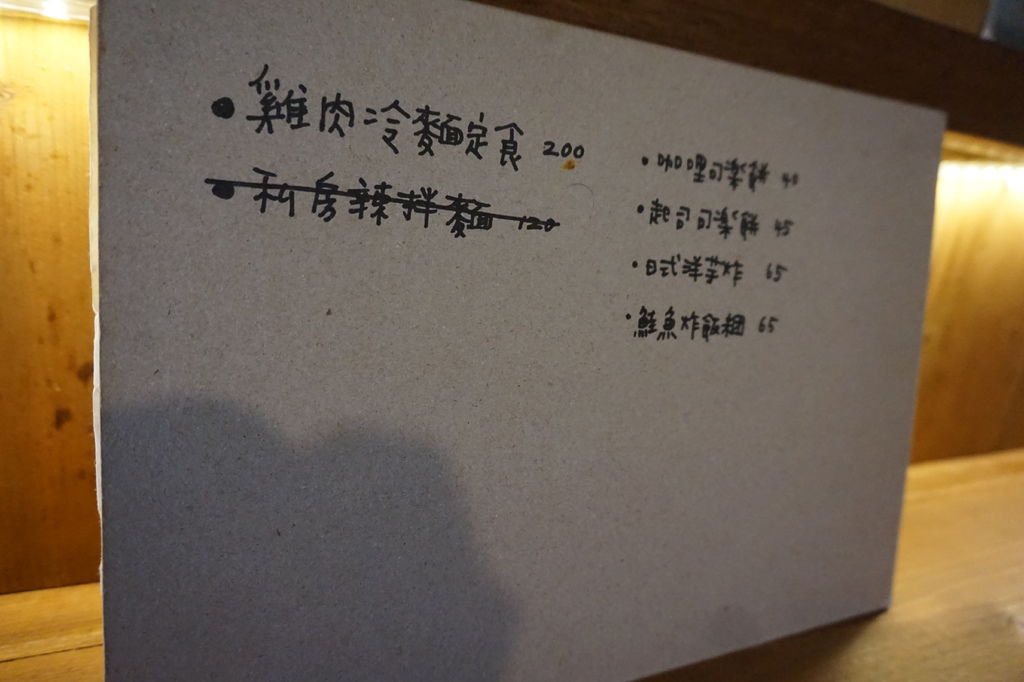 • 雞肉冷麵定食 200
• 私房辣拌麵 120
• 咖哩可樂餅 40
• 起司可樂餅 45
• 日式洋芋炸 65
• 鮭魚炸飯糰 65